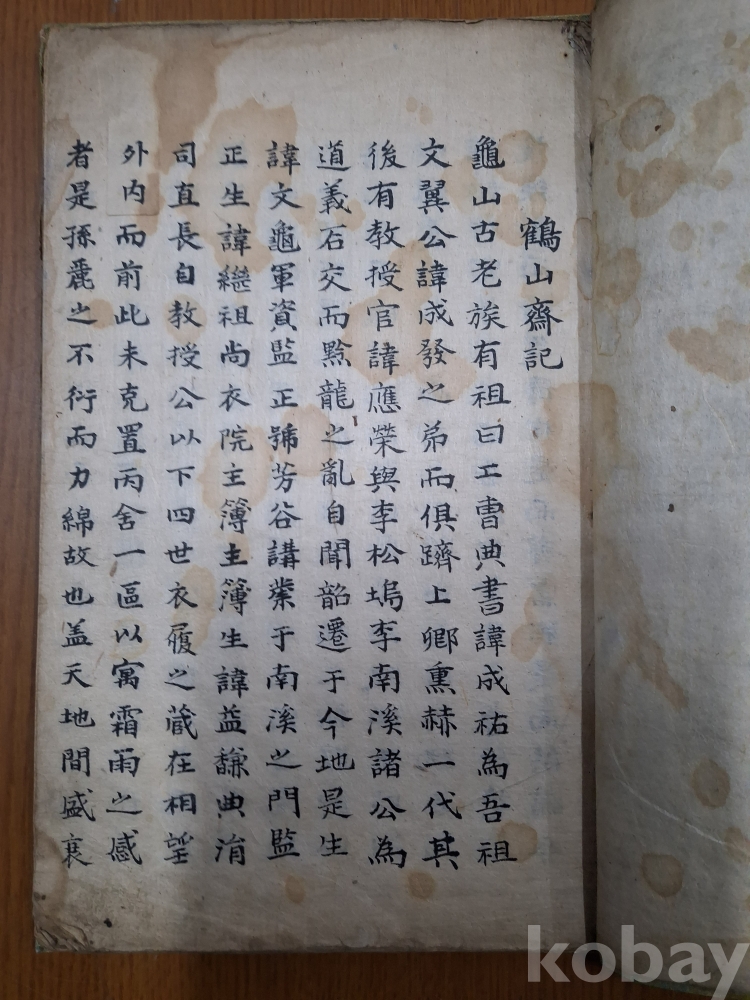 鶴山齋記
龜山古老族有祖曰工曹典書諱成祐為吾祖
文翼公諱成發之弟而俱躋上卿熏赫一代其
後有教授官諱應榮與李松塢李南溪諸公為
道義石交而黙龍之亂自聞韶遷于今地是生
諱文龜軍資監正號芳谷講業于南溪之門監
正生諱繼祖尚衣院主簿主簿生諱益馦典涓
司直長自教授公以下四世衣履之藏在相望
外内而前此未克置丙舍一區以寓霜雨之感
者是孫麗之不衍而力綿故也盖天地間盛衰
kobay